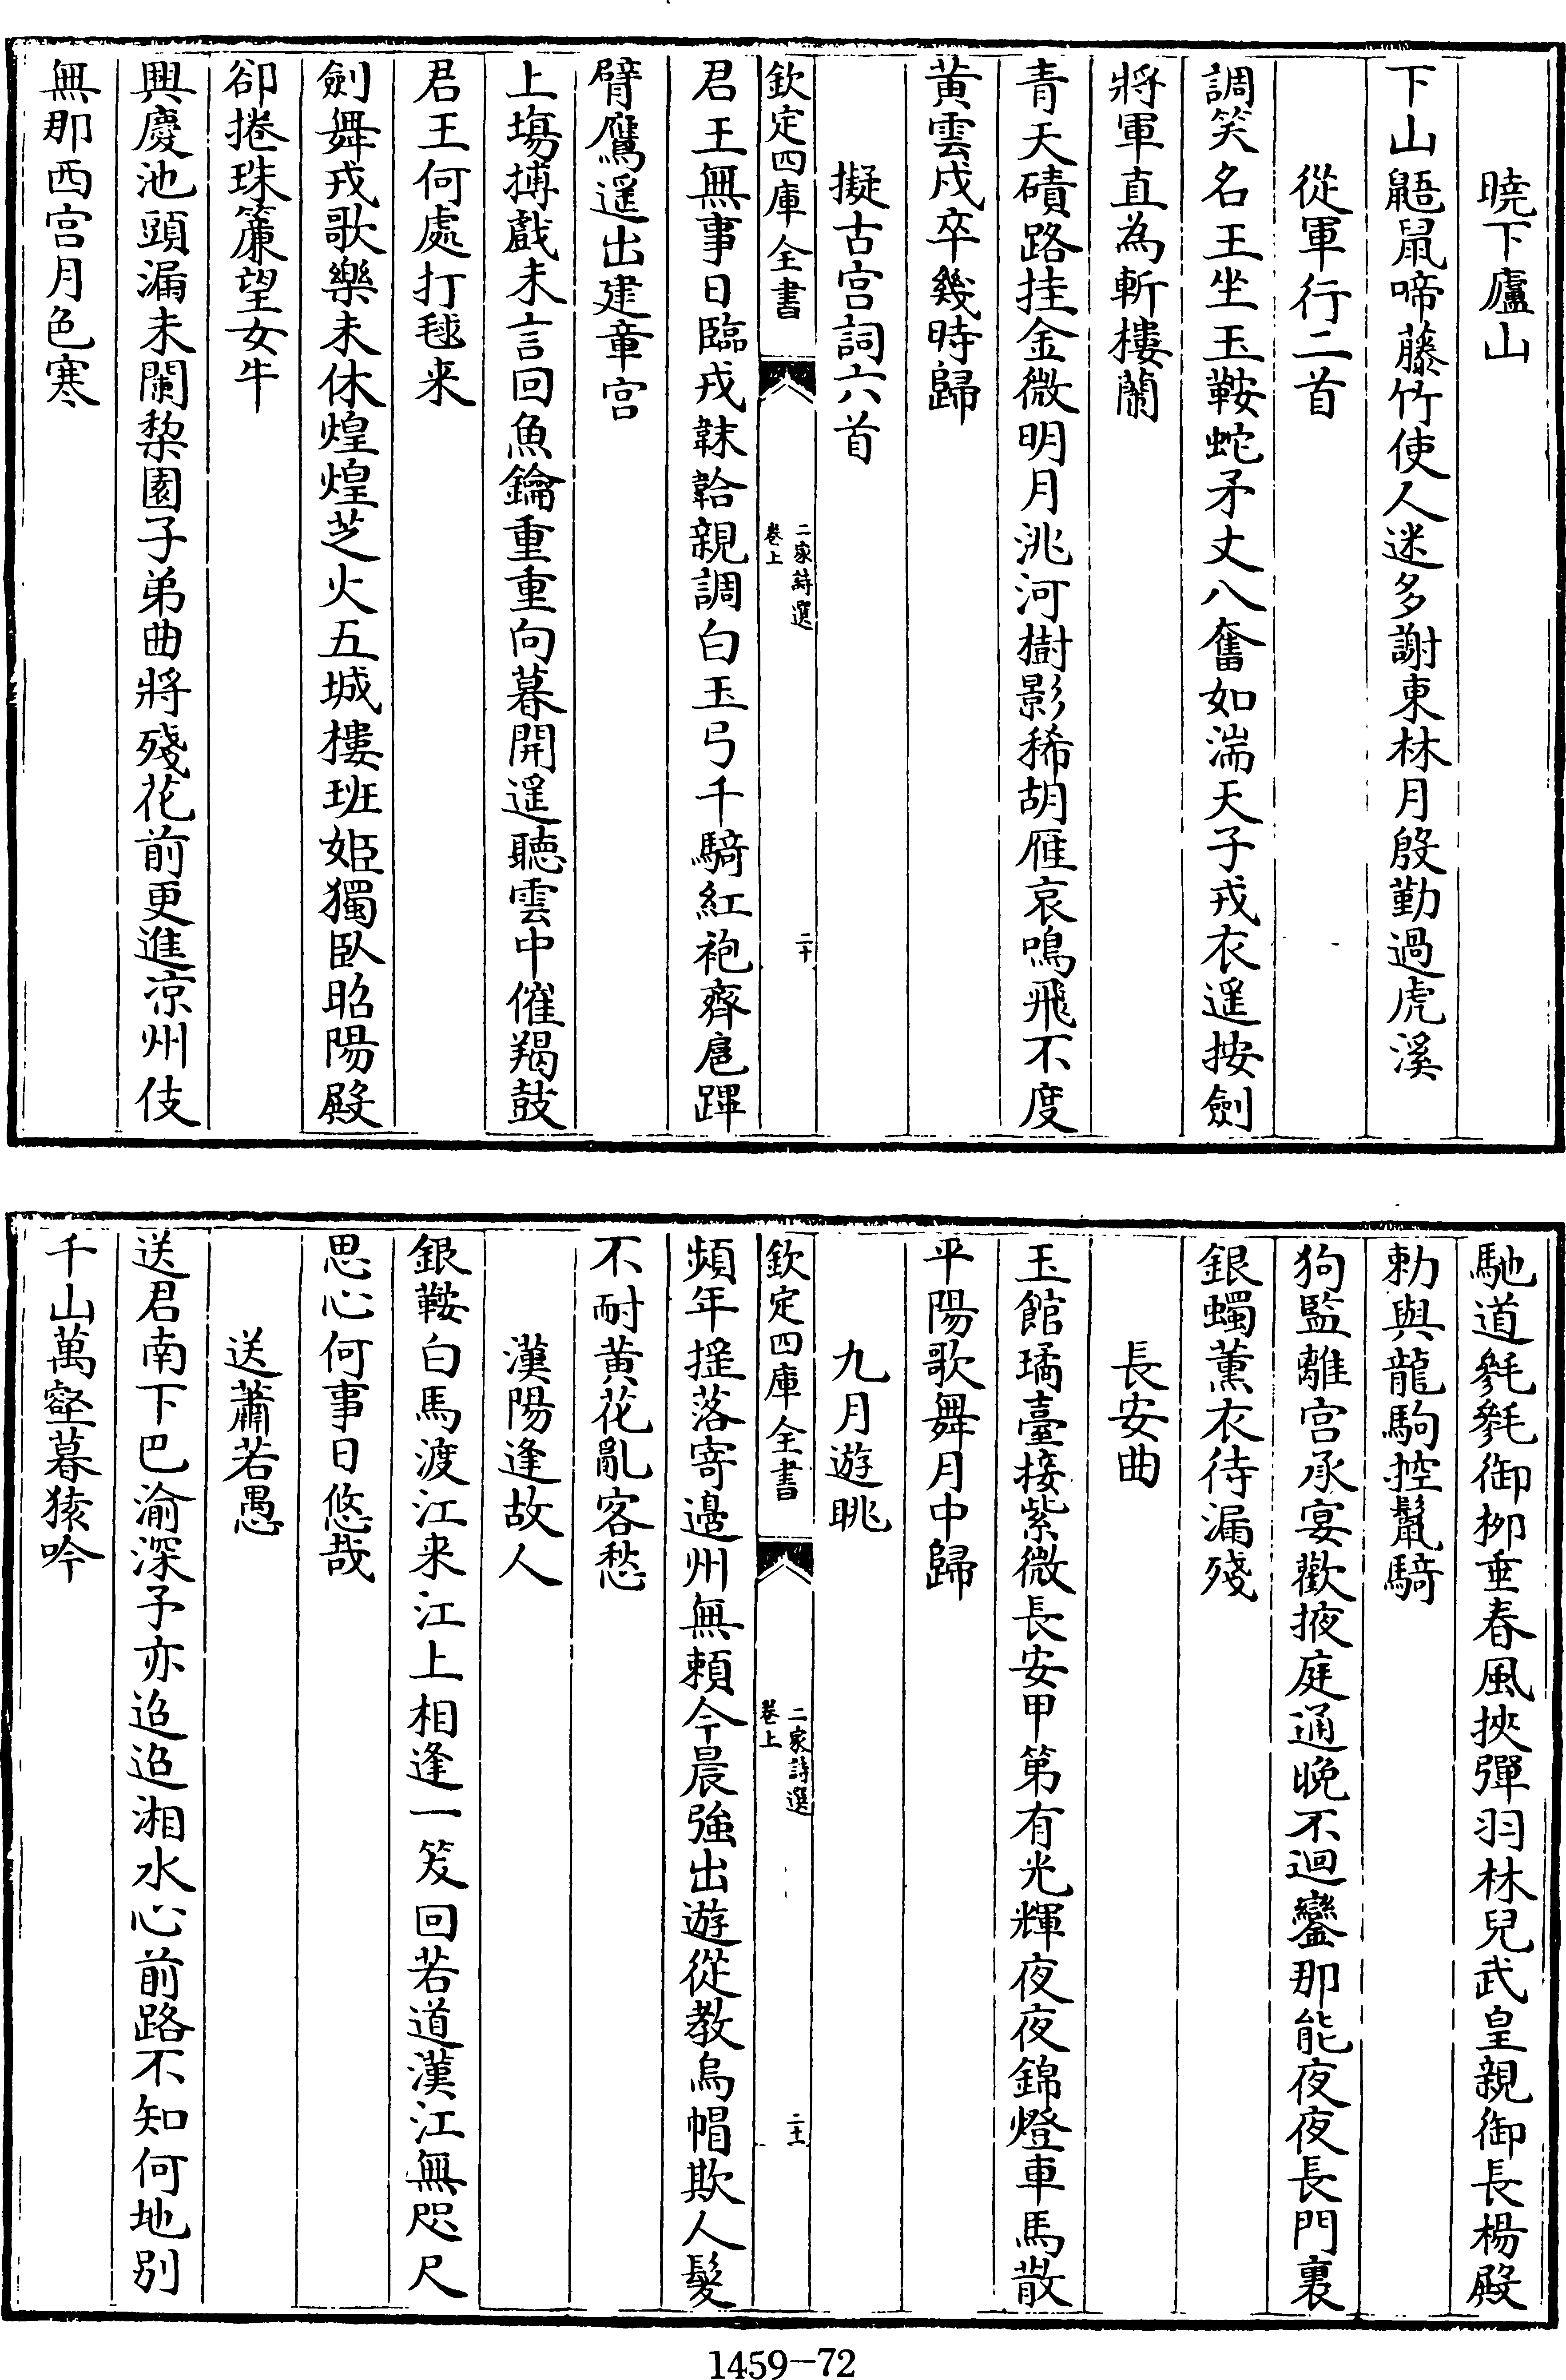 曉下廬山
下山鼯鼠啼藤竹使人迷多謝東林月殷勤過虎溪
從軍行二首
調笑名王坐玉鞍蛇矛丈八奮如湍天子戎衣遥按劍
將軍直為斬樓蘭
青天磧路挂金微明月洮河樹影稀胡雁哀鳴飛不度
黄雲戍卒幾時歸
擬古宫詞六首
欽定四庫全書
二家詩選
卷上
二十
君王無事日臨戎韎韐親調白玉弓千騎紅袍齊扈蹕
臂鷹遥出建章宫
上塲搏戲未言回魚鑰重重向暮開遥聽雲中催羯鼓
君王何處打毬来
劍舞戎歌樂未休煌煌芝火五城樓班姬獨臥昭陽殿
卻捲珠簾望女牛
興慶池頭漏未闌棃園子弟曲將殘花前更進凉州伎
無那西宫月色寒
馳道毿毿御柳垂春風挾彈羽林兒武皇親御長楊殿
勅與龍駒控鬣騎
狗監離宫承宴歡掖庭通晚不迴鑾那能夜夜長門裏
銀蠋薰衣待漏殘
長安曲
玉館璚臺接紫微長安甲第有光輝夜夜錦燈車馬散
平陽歌舞月中歸
九月遊眺
欽定四庫全書
二家詩選
卷上
二十一
頻年揺落寄邉州無頼今晨強出遊從教烏帽欺人髮
不耐黄花亂客愁
漢陽逢故人
銀鞍白馬渡江来江上相逢一笑回若道漢江無咫尺
思心何事日悠哉
送蕭若愚
送君南下巴渝深予亦迢迢湘水心前路不知何地别
千山萬壑暮猿吟
1459-72